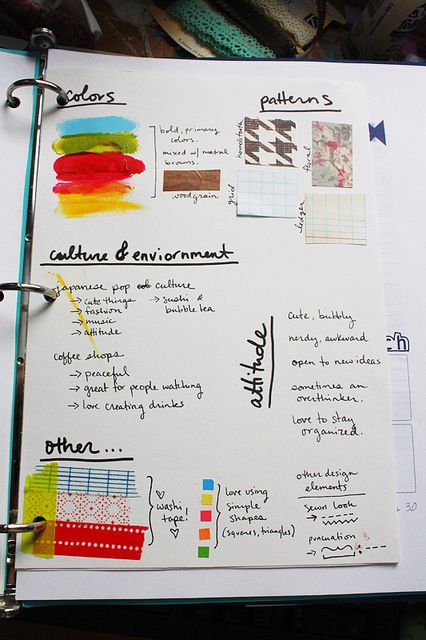 colors
bold, primary
colors.
mixed w/ nutral
browns.
woodgrain
patterns
houndstooth
floral
grid
ledger
culture & enviornment
japanese pop culture
→ cute things
→ fashion
→ music
→ attitude
→ sushi &
bubble tea
coffee shops
→ peaceful
→ great for people watching
→ love creating drinks
attitude
cute, bubbly
nerdy, awkward
open to new ideas
sometimes an
overthinker.
love to stay
organized.
other...
washi
tape!
love using
simple
shapes
(squares, triangles)
other design
elements
sewn look
puncuation
ch
30